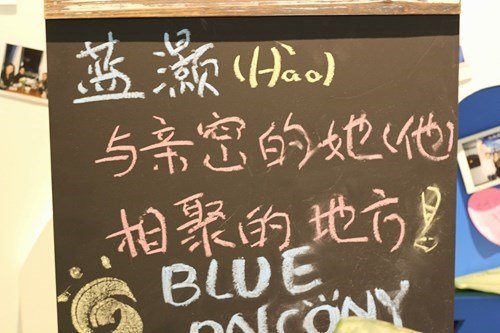 蓝灏(Hào)
与亲密的她(他)
相聚的地方!
BLUE
BALCÖNY